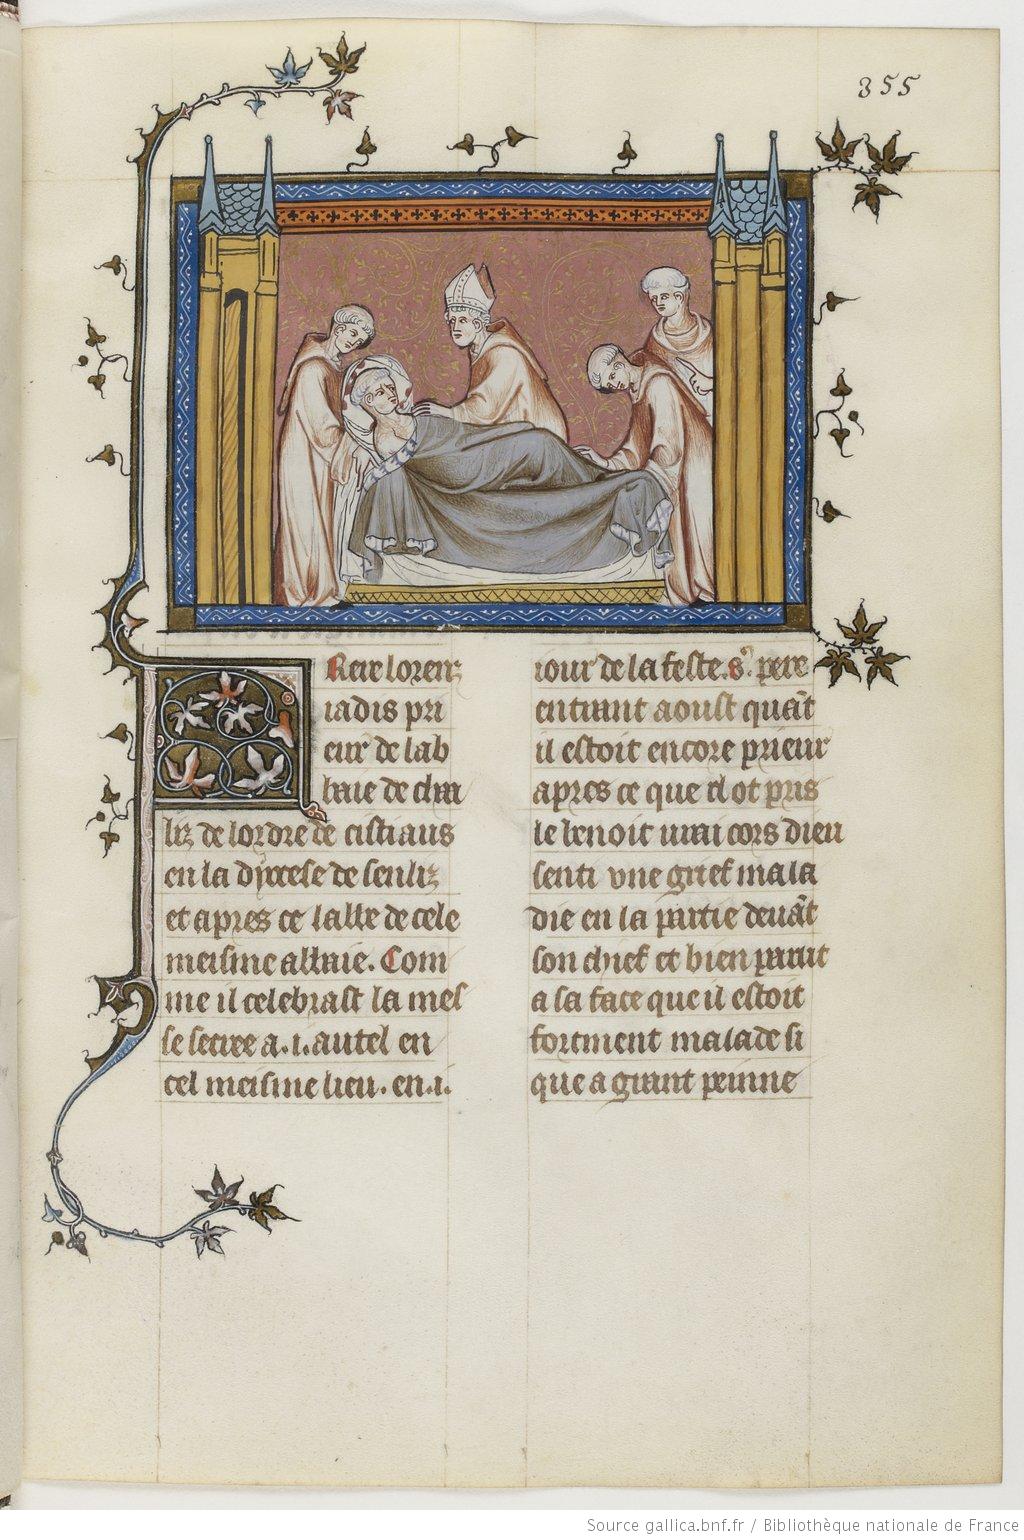 355
Rere lorenz
iadis pri
eur de lab
baie de chaa
liz de lordre de cistiaus
en la dyocese de senliz
et apres ce labbe de cele
meisme abbaie. Com
me il celebrast la mes
se secree a .i. autel en
cel meisme lieu. en .i.
iour de la feste. s. pere
entrant aoust quāt
il estoit encore prieur
apres ce que il ot pris
le benoit urai cors dieu
senti vne grief mala
die en la partie deuāt
son chief et bien parut
a sa face que il estoit
forment malade si
que a grant peinne
Source gallica.bnf.fr / Bibliothèque nationale de France